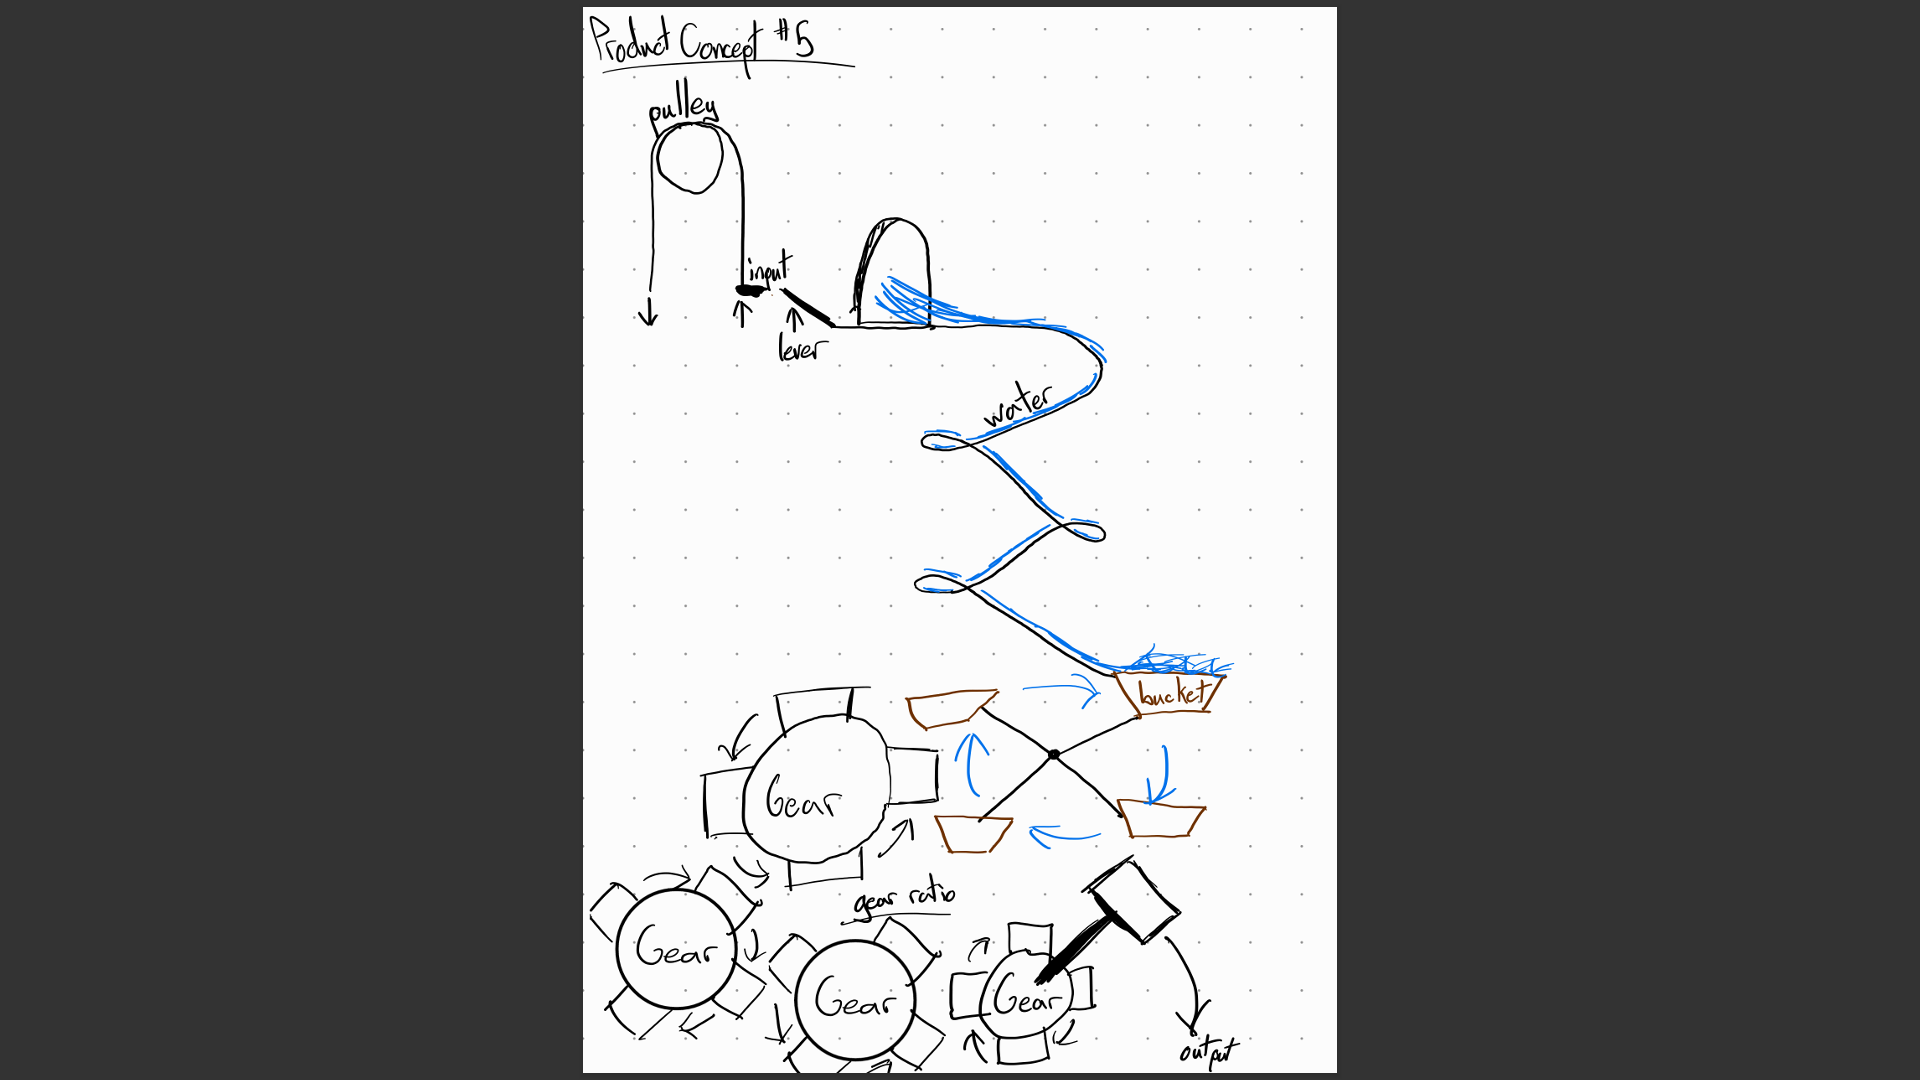 Product Concept #5
pulley
input
lever
water
bucket
Gear
gear ratio
Gear
Gear
Gear
output